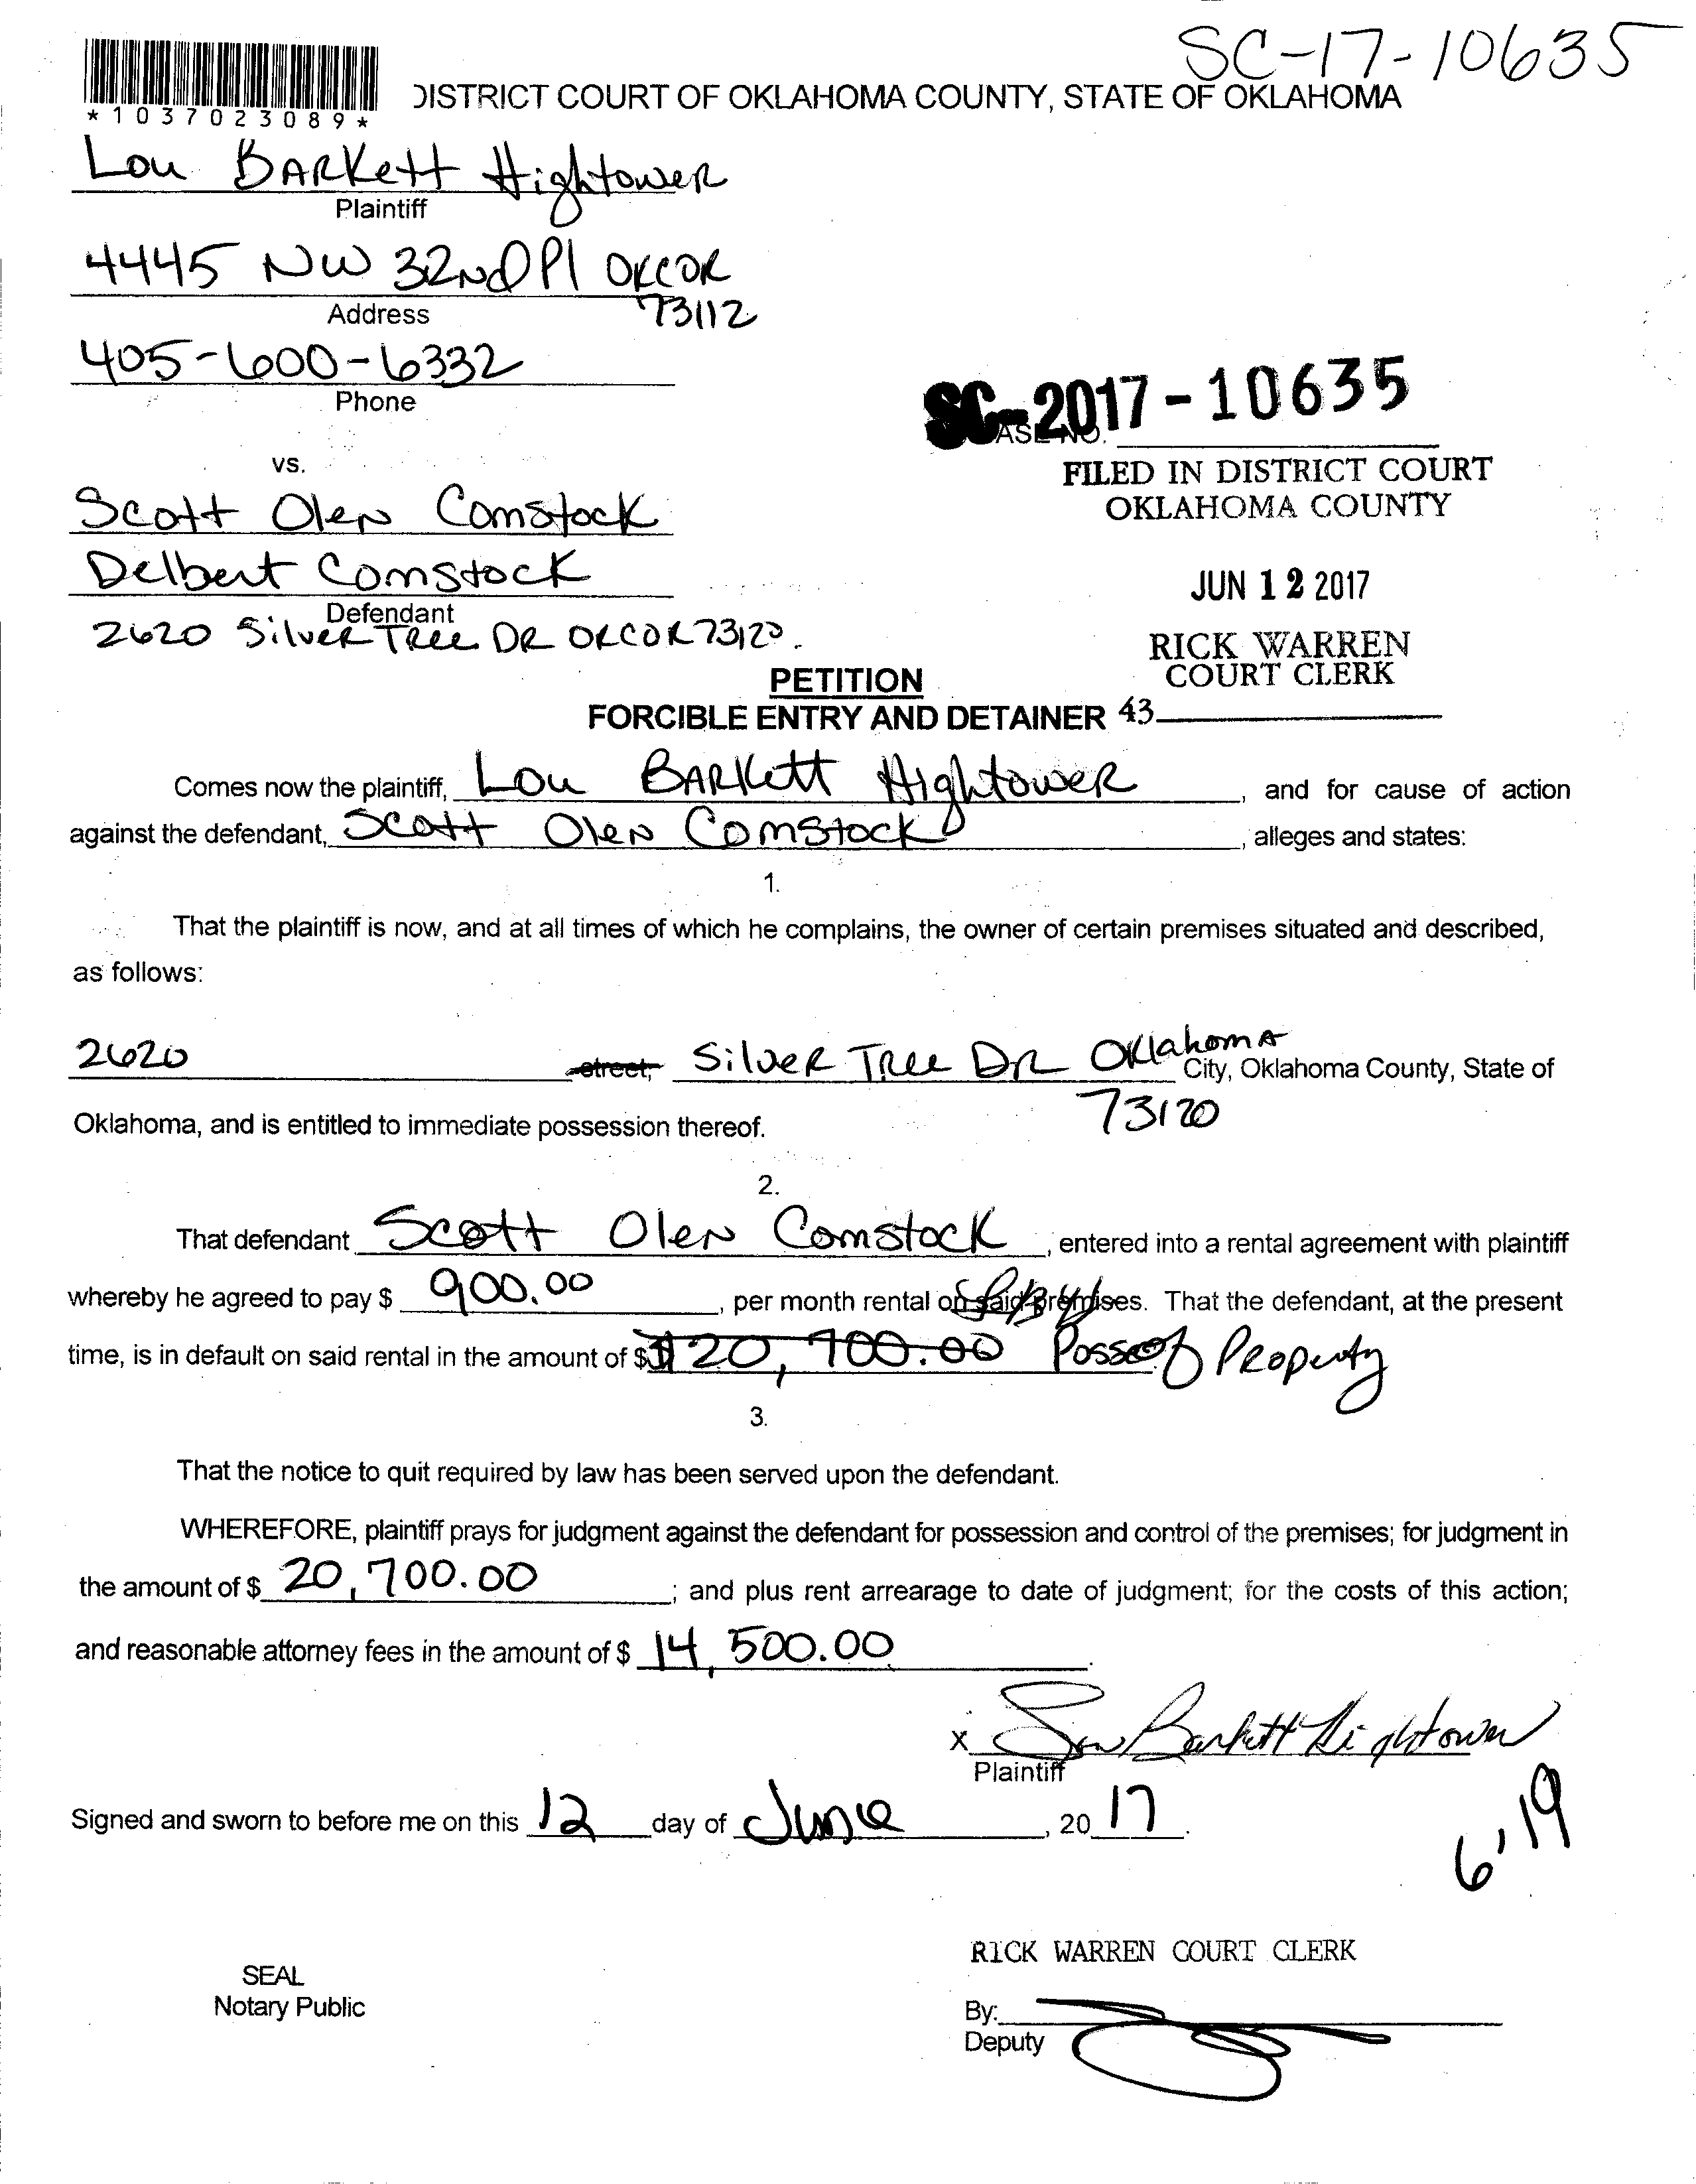 SC-17-10635
*1037023089*
DISTRICT COURT OF OKLAHOMA COUNTY, STATE OF OKLAHOMA
Lou BARKett Hightower
Plaintiff
4445 NW 32nd Pl OKCOK
Address
73112
405-600-6332
Phone
SC-2017-10635
CASE NO.
vs.
FILED IN DISTRICT COURT
OKLAHOMA COUNTY
Scott Olen Comstock
Delbert Comstock
JUN 12 2017
Defendant
2620 Silver Tree DR OKCOK 73120.
RICK WARREN
COURT CLERK
PETITION
FORCIBLE ENTRY AND DETAINER 43
Comes now the plaintiff, Lou BARKett Hightower, and for cause of action
against the defendant, Scott Olen Comstock, alleges and states:
1.
That the plaintiff is now, and at all times of which he complains, the owner of certain premises situated and described,
as follows:
2620 street, Silver Tree DR Oklahoma City, Oklahoma County, State of
73120
Oklahoma, and is entitled to immediate possession thereof.
2.
That defendant Scott Olen Comstock, entered into a rental agreement with plaintiff
whereby he agreed to pay $ 900.00, per month rental on said premises. That the defendant, at the present
time, is in default on said rental in the amount of $ 20,700.00 Poss of Property
3.
That the notice to quit required by law has been served upon the defendant.
WHEREFORE, plaintiff prays for judgment against the defendant for possession and control of the premises; for judgment in
the amount of $ 20,700.00; and plus rent arrearage to date of judgment; for the costs of this action;
and reasonable attorney fees in the amount of $ 14,500.00.
X Lou Barkett Hightower
Plaintiff
Signed and sworn to before me on this 12 day of June, 2017.
6,19
RICK WARREN COURT CLERK
SEAL
Notary Public
By:
Deputy